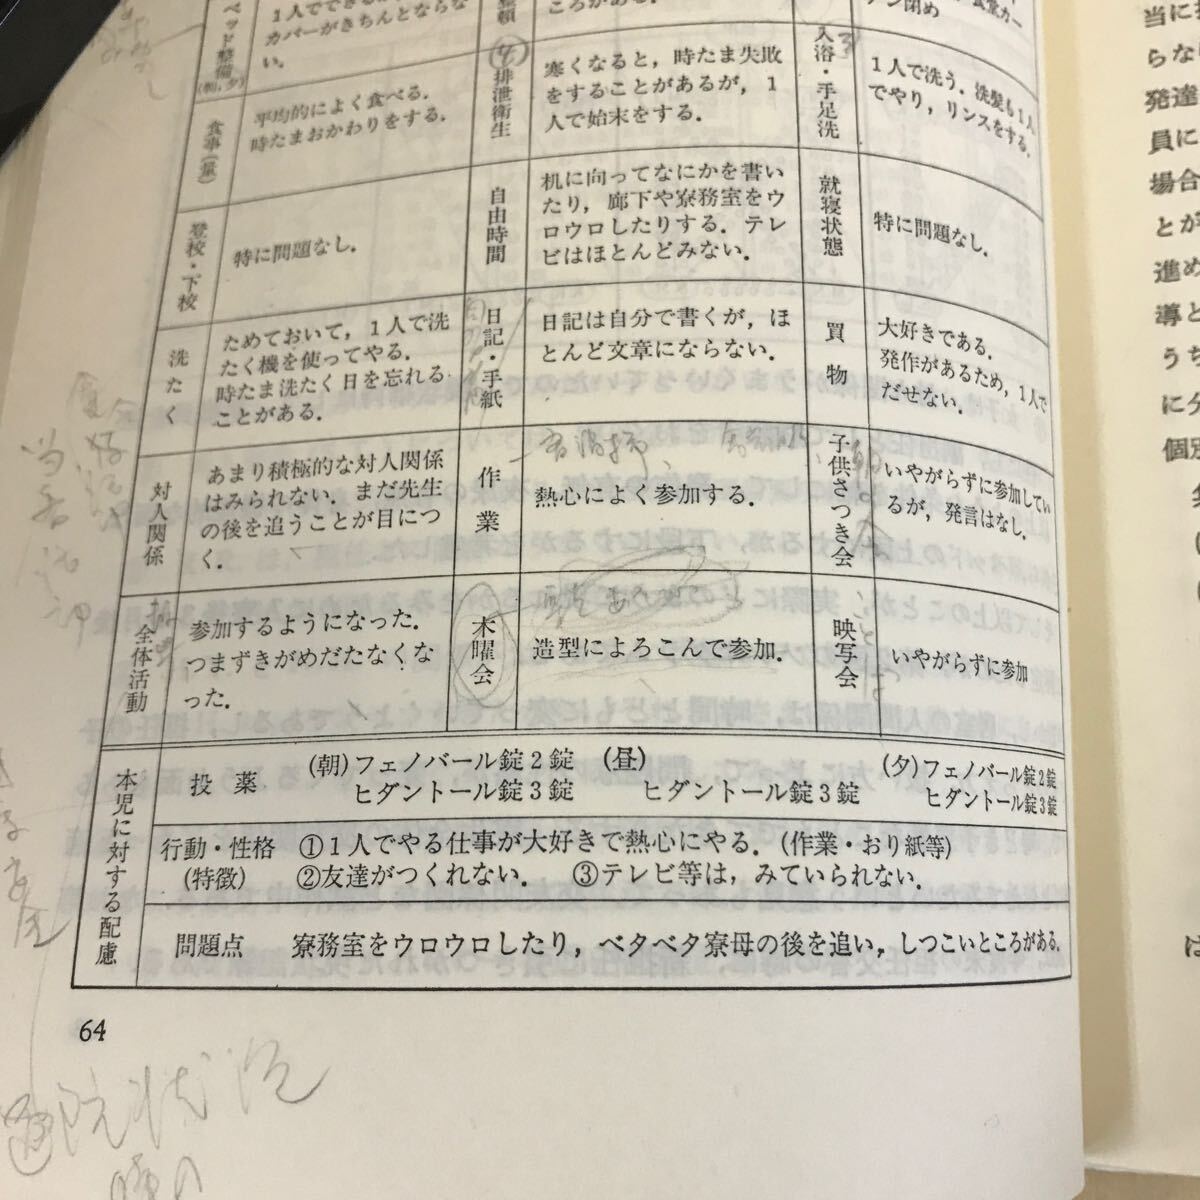 ベッド整備
(朝,夕)
カバーがきちんとならな
い.
ころがある.
入浴・手足洗
1人で洗う. 洗髪も1人
でやり, リンスをする.
食事(量)
平均的によく食べる.
時たまおかわりをする.
排泄衛生
寒くなると, 時たま失敗
をすることがあるが, 1
人で始末をする.
登校・下校
特に問題なし.
自由時間
机に向ってなにかを書い
たり, 廊下や寮務室をウ
ロウロしたりする. テレ
ビはほとんどみない.
就寝状態
特に問題なし.
洗たく
ためておいて, 1人で洗
たく機を使ってやる.
時たま洗たく日を忘れる
ことがある.
日記・手紙
日記は自分で書くが, ほ
とんど文章にならない.
買物
大好きである.
発作があるため, 1人で
だせない.
対人関係
あまり積極的な対人関係
はみられない. まだ先生
の後を追うことが目につ
く.
作業
熱心によく参加する.
子供さつき会
いやがらずに参加してい
るが, 発言はなし.
全体活動
参加するようになった.
つまずきがめだたなくな
った.
木曜会
造型によろこんで参加.
映写会
いやがらずに参加
本児に対する配慮
投薬
(朝)フェノバール錠2錠
ヒダントール錠3錠
(昼)
ヒダントール錠3錠
(夕)フェノバール錠2錠
ヒダントール錠3錠
行動・性格
(特徴)
①1人でやる仕事が大好きで熱心にやる. (作業・おり紙等)
②友達がつくれない. ③テレビ等は, みていられない.
問題点
寮務室をウロウロしたり, ベタベタ寮母の後を追い, しつこいところがある.
64
通院状況
らな
発達
員に
場合
とが
進め
導と
うち
に分
個別
は